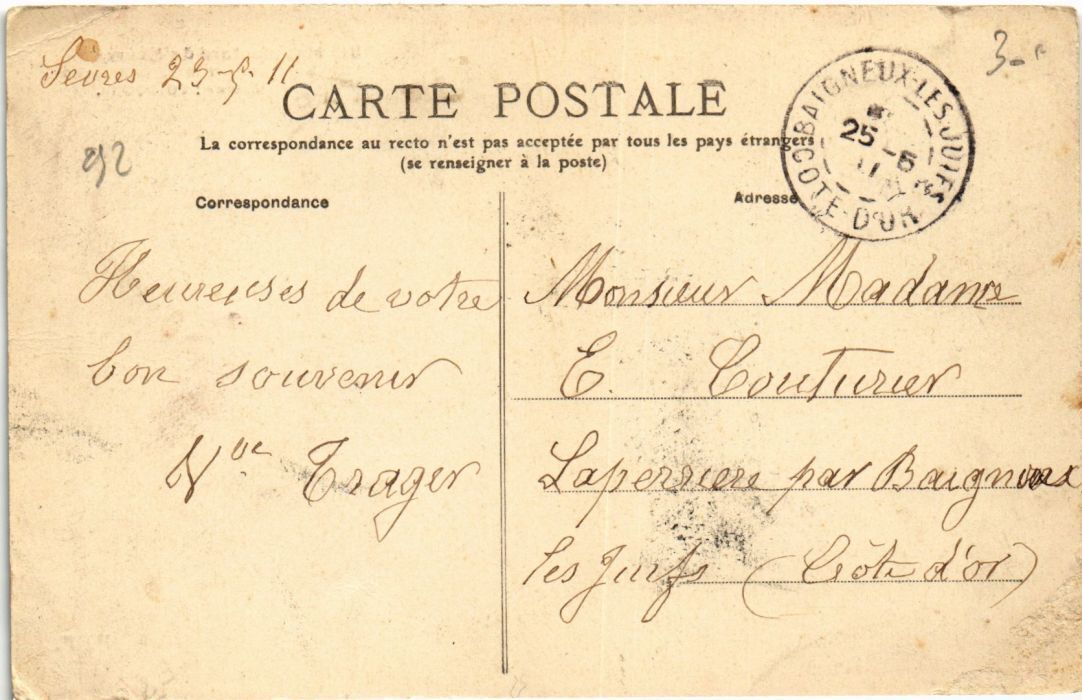 Sevres 23-5-11
3-
CARTE POSTALE
La correspondance au recto n'est pas acceptée par tous les pays étrangers
(se renseigner à la poste)
92
BAIGNEUX-LES-JUIFS
25 -5
11
COTE-D'OR
Correspondance
Adresse
Heureuses de votre
bon souvenir
Vve Trager
Monsieur Madame
E. Couturier
Laperriere par Baigneux
les Juifs (Côte d'or)